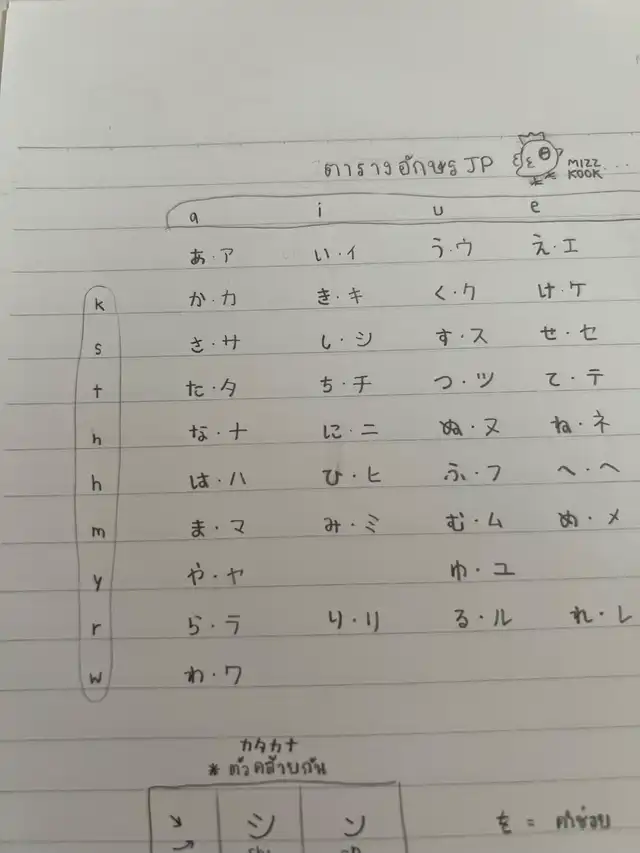 ตารางอักษร JP MIZZ KOOK ...
a i u e
あ・ア い・イ う・ウ え・エ
k か・カ き・キ く・ク け・ケ
s さ・サ し・シ す・ス せ・セ
t た・タ ち・チ つ・ツ て・テ
n な・ナ に・ニ ぬ・ヌ ね・ネ
h は・ハ ひ・ヒ ふ・フ へ・ヘ
m ま・マ み・ミ む・ム め・メ
y や・ヤ ゆ・ユ
r ら・ラ り・リ る・ル れ・レ
w わ・ワ
カタカナ
* ตัวคล้ายกัน
↘ シ ン を = คำช่วย